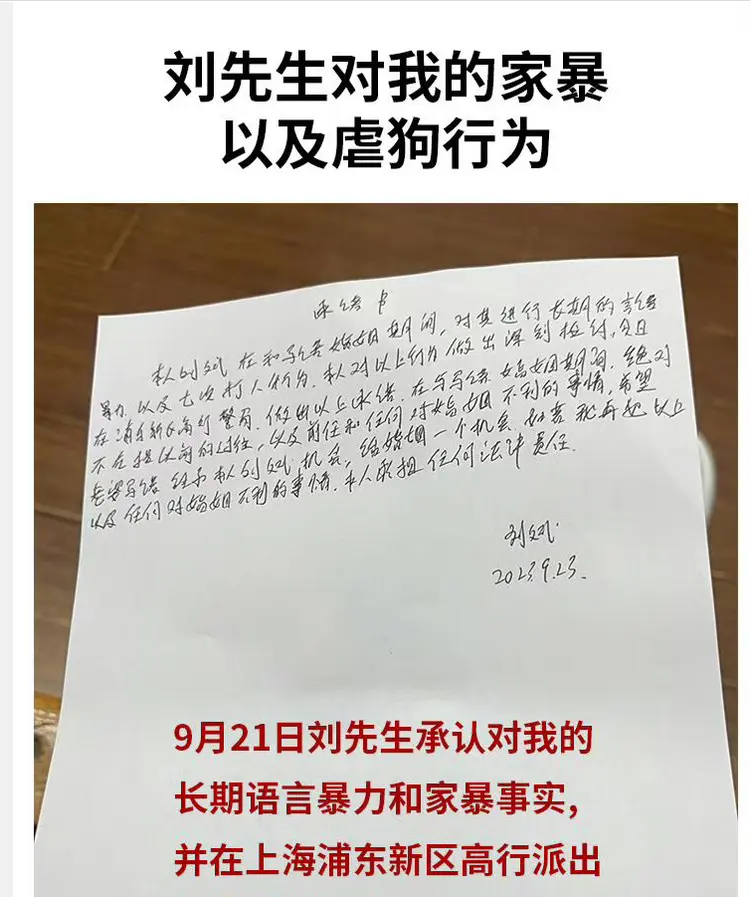 刘先生对我的家暴
以及虐狗行为
承诺书
本人刘斌在和马绪婚姻期间,对其进行长期的言语
暴力,以及七次打人行为.本人对以上行为做出深刻检讨,
在浦东新区高行警局.做出以上承诺.在与马绪婚姻期间.绝对
不在提以前的过往,以及前任和任何对婚姻不利的事情,希望
老婆马绪给予本人刘斌机会,给婚姻一个机会.如若我再犯以上
以及任何对婚姻不利的事情.本人承担任何法律责任.
刘斌
2023.9.23.
9月21日刘先生承认对我的
长期语言暴力和家暴事实,
并在上海浦东新区高行派出